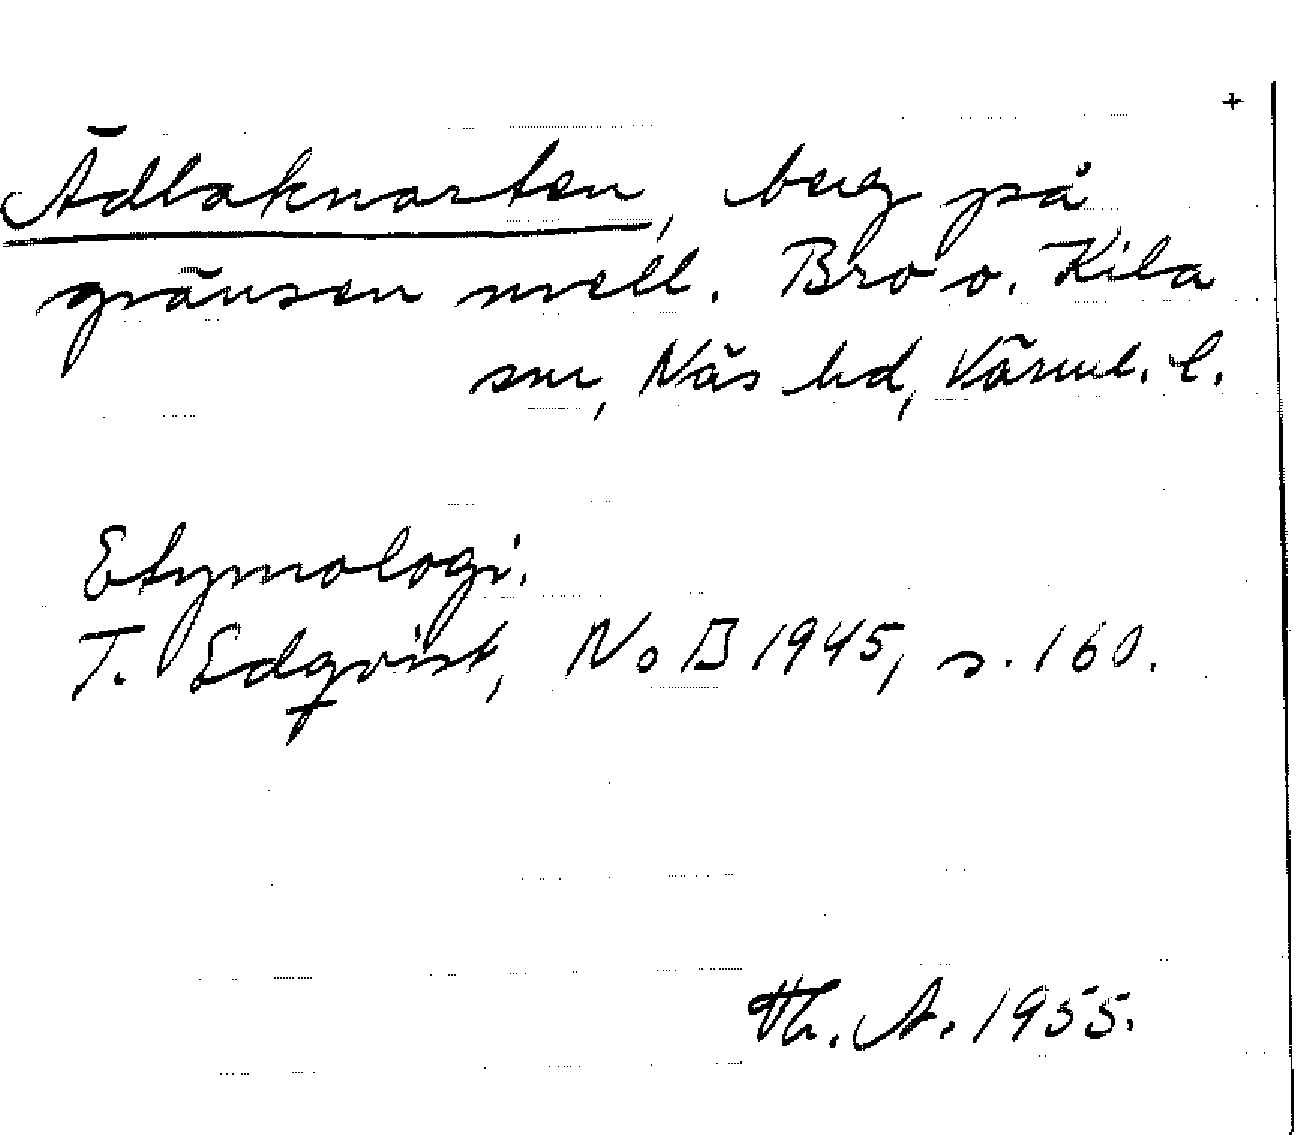 +
Ädlaknarten, berg på
gränsen mell. Bro o. Kila
snr, Näs hd, Värml. l.
Etymologi.
T. Edqvist, NoB 1945, s. 160.
Th. A. 1955.